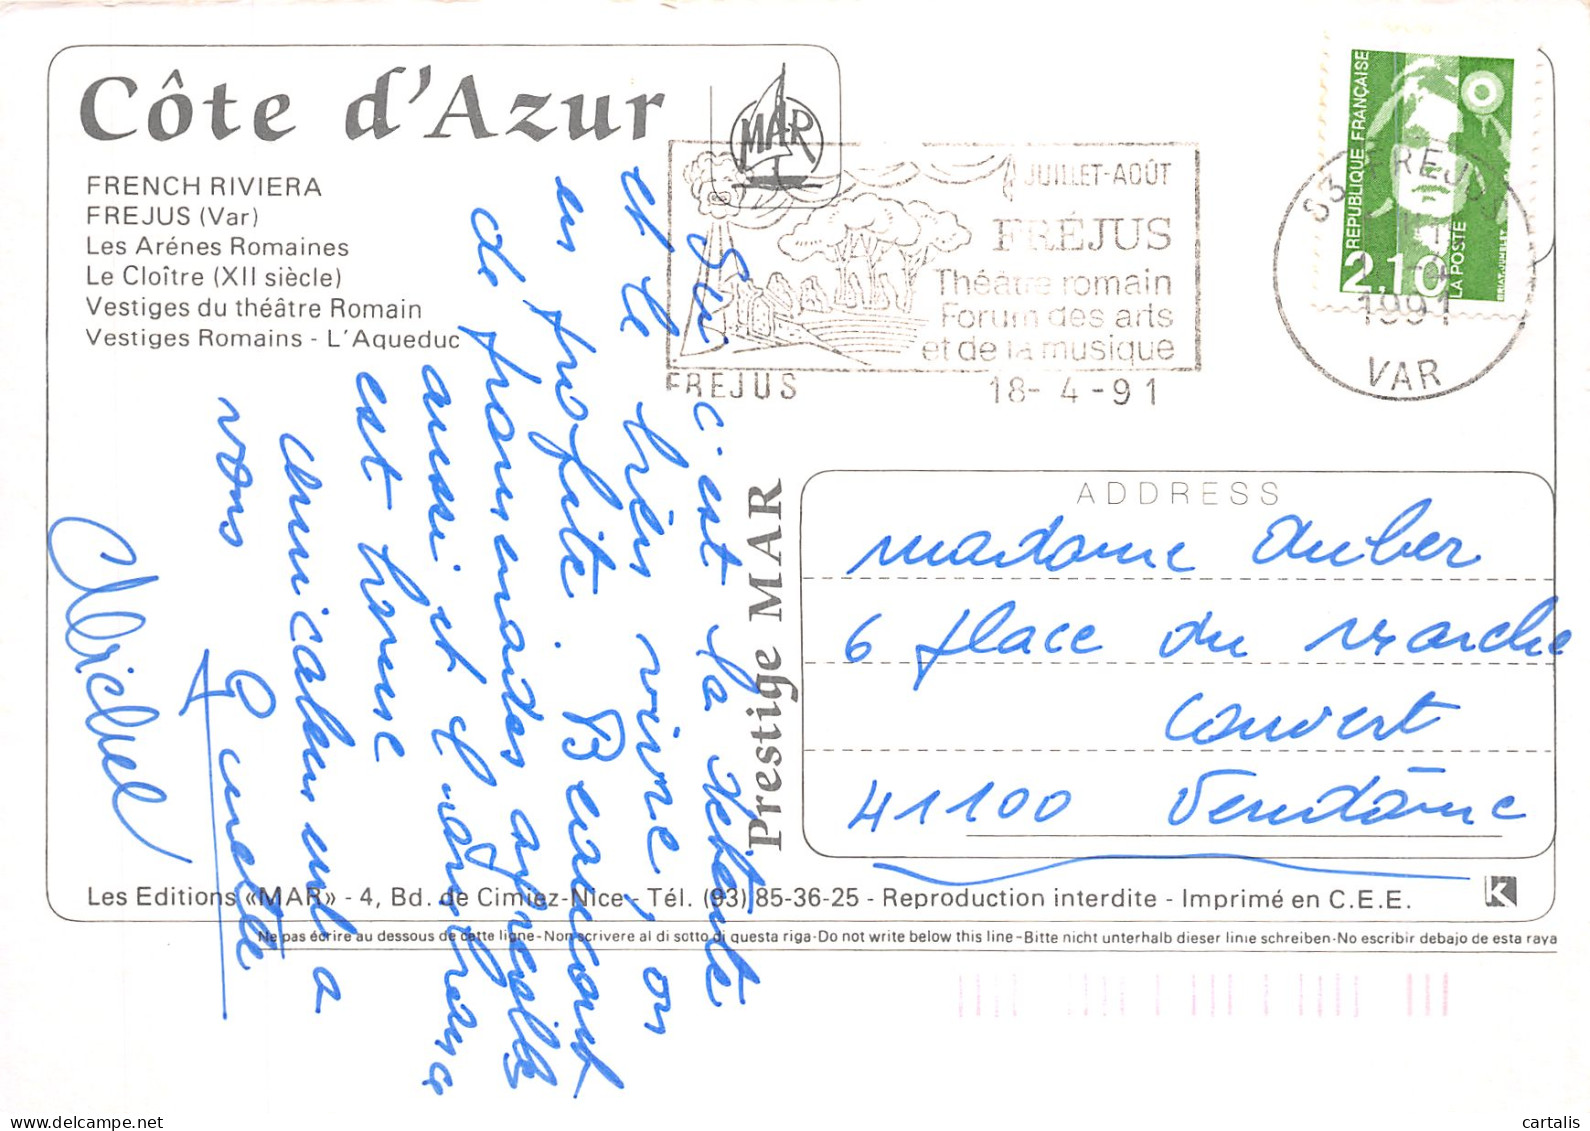 Côte d'Azur
MAR
FRENCH RIVIERA
FREJUS (Var)
Les Arénes Romaines
Le Cloître (XII siècle)
Vestiges du théâtre Romain
Vestiges Romains - L'Aqueduc
JUILLET-AOÛT
FRÉJUS
Théâtre romain
Forum des arts
et de la musique
FREJUS 18-4-91
83 FREJUS
1991
VAR
REPUBLIQUE FRANÇAISE
2,10
LA POSTE
Ici c'est la détente
et le bien vivre, on
en profite. Beaucoup
de promenades agréables
aussi et l'ambiance
est bonne
Amical
vous
Ginette
Michel
Prestige MAR
ADDRESS
madame Auber
6 place du marche
couvert
41100 Vendôme
Les Editions «MAR» - 4, Bd. de Cimiez-Nice - Tél. (93) 85-36-25 - Reproduction interdite - Imprimé en C.E.E.
K
Ne pas écrire au dessous de cette ligne-Non scrivere al di sotto di questa riga-Do not write below this line-Bitte nicht unterhalb dieser linie schreiben-No escribir debajo de esta raya
cartalis
delcampe.net